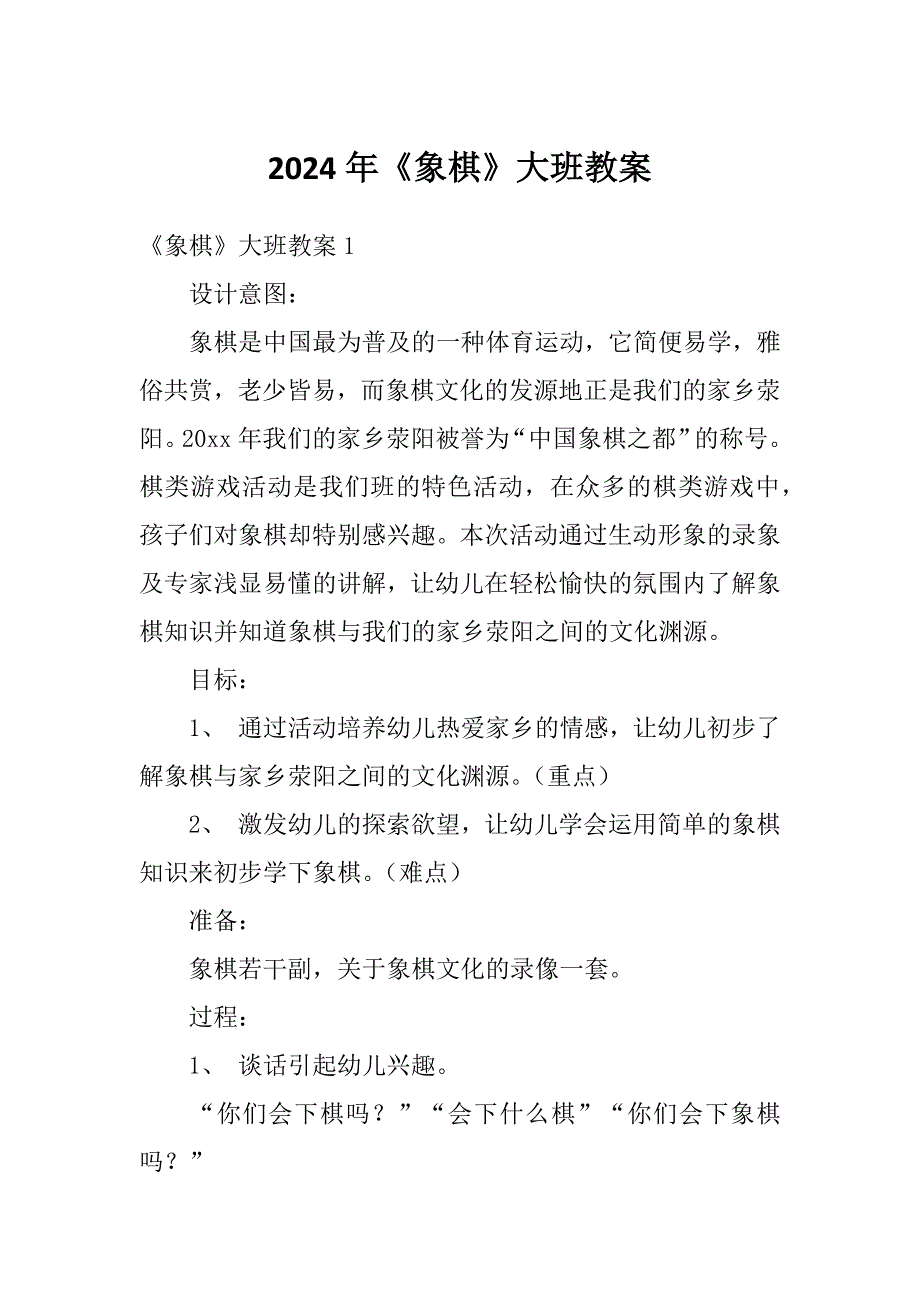 2024 年《象棋》大班教案
《象棋》大班教案 1
设计意图：
象棋是中国最为普及的一种体育运动，它简便易学，雅
俗共赏，老少皆易，而象棋文化的发源地正是我们的家乡荥
阳。20xx 年我们的家乡荥阳被誉为“中国象棋之都”的称号。
棋类游戏活动是我们班的特色活动，在众多的棋类游戏中，
孩子们对象棋却特别感兴趣。本次活动通过生动形象的录象
及专家浅显易懂的讲解，让幼儿在轻松愉快的氛围内了解象
棋知识并知道象棋与我们的家乡荥阳之间的文化渊源。
目标：
1、 通过活动培养幼儿热爱家乡的情感，让幼儿初步了
解象棋与家乡荥阳之间的文化渊源。（重点）
2、 激发幼儿的探索欲望，让幼儿学会运用简单的象棋
知识来初步学下象棋。（难点）
准备：
象棋若干副，关于象棋文化的录像一套。
过程：
1、 谈话引起幼儿兴趣。
“你们会下棋吗？”“会下什么棋”“你们会下象棋
吗？”